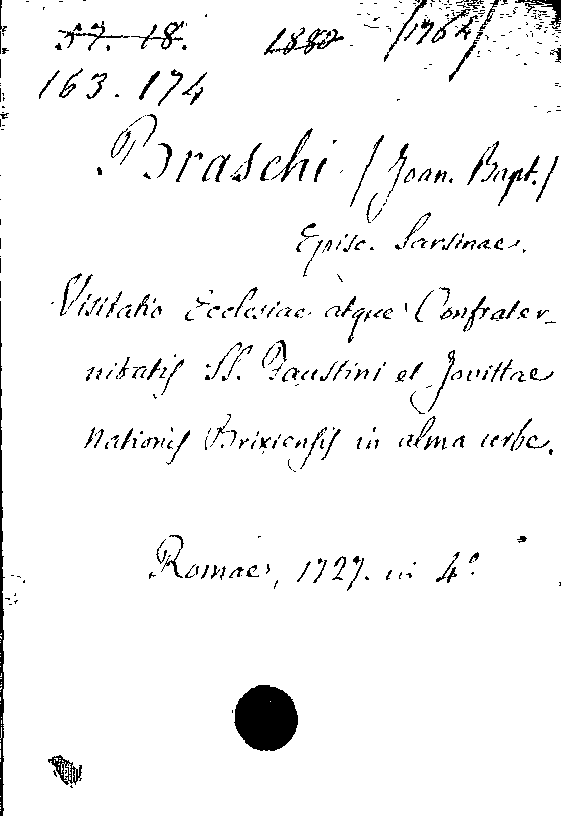 57. 18. 1880 /1764/
163. 174
Braschi /Joan. Bapt./
Episc. Sarsinae.
Visitatio Ecclesiae atque Confrater-
nitatis SS. Faustini et Jovittae
nationis Brixiensis in alma urbe.
Romae, 1727. in 4º